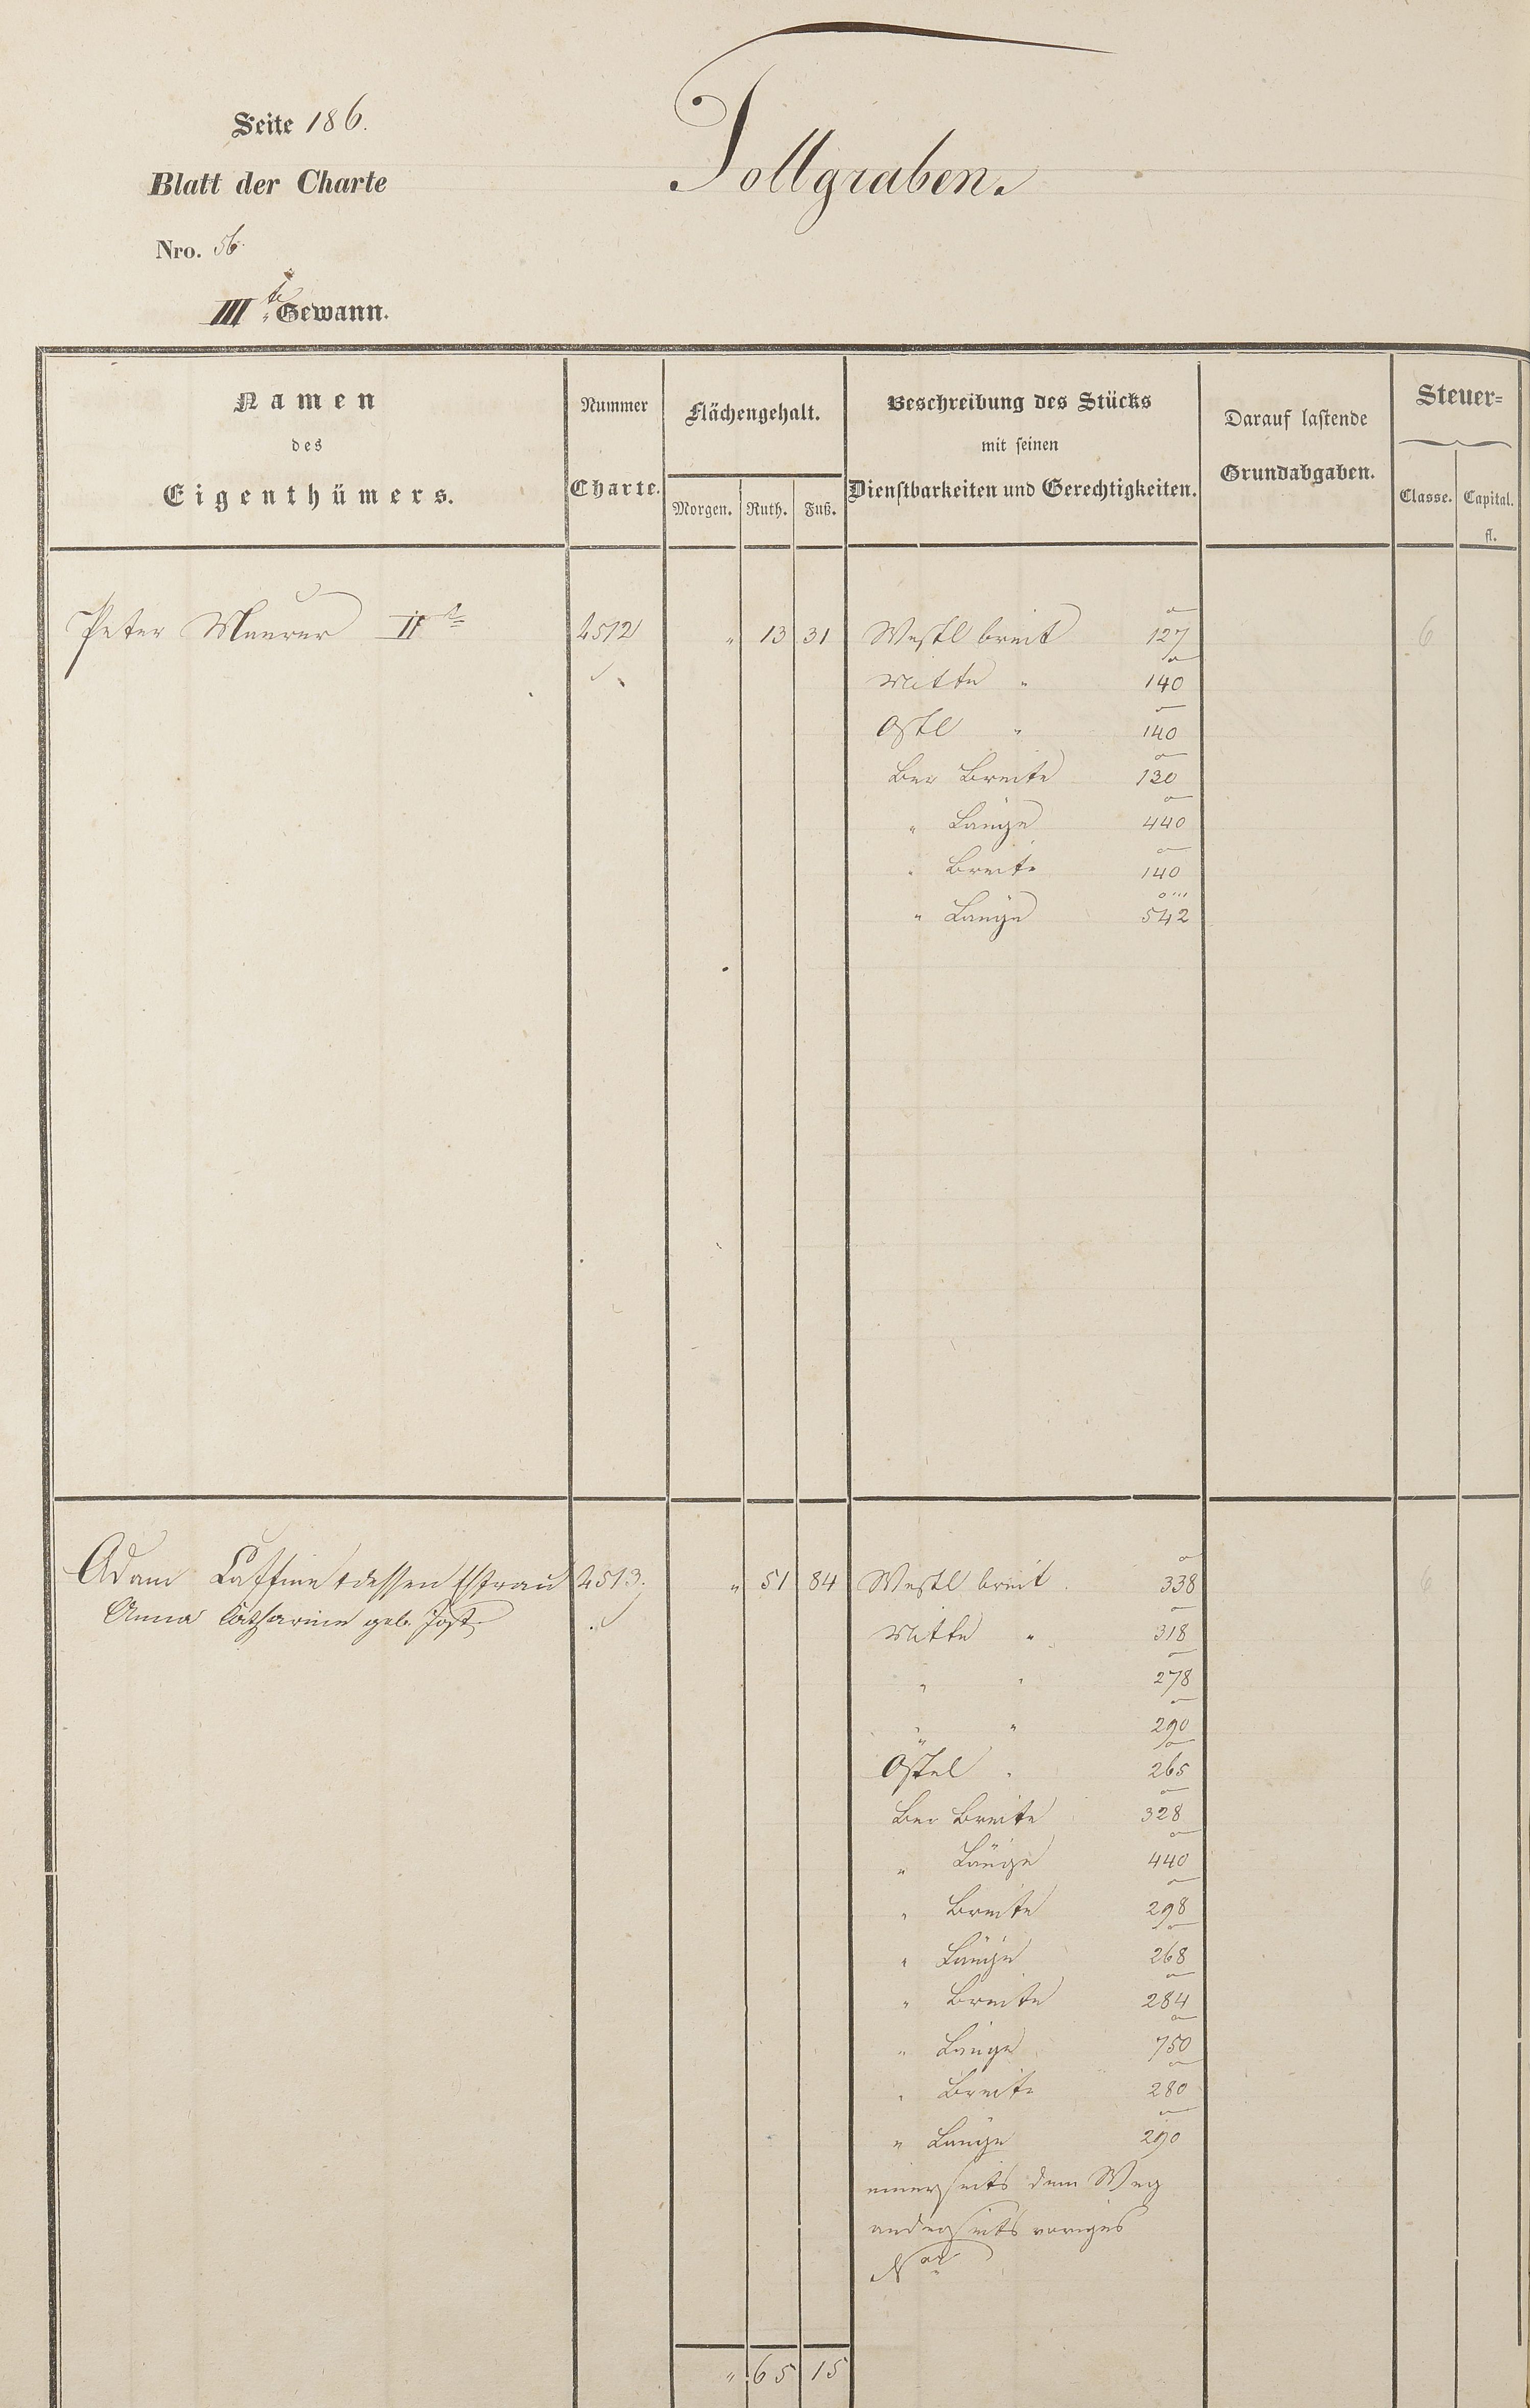 Seite 186.
Tollgraben.
Blatt der Charte
Nro. 56
III te Gewann.
Namen
des
Eigenthümers.
Nummer
Charte.
Flächengehalt.
Morgen. Ruth. Fuß.
Beschreibung des Stücks
mit seinen
Dienstbarkeiten und Gerechtigkeiten.
Darauf lastende
Grundabgaben.
Steuer=
Classe. Capital.
fl.
Peter Maurer II t 4512 " 13 31 Westl breit 127 6
Mitte " 140
Ostl " 140
Ber Breite 130
" Länge 440
" Breite 140
" Länge 542
Adam dessen Ehfrau 4513. " 51 84 Westl breit 338 6
Anna Catharine geb. Jost
Mitte " 318
" " 278
" " 290
Östel " 265
Ber Breite 328
" Länge 440
" Breite 298
" Länge 268
" Breite 284
" Länge 750
" Breite 280
" Länge 290
einerseits dem Weg
anderseits voriges
" 65 15